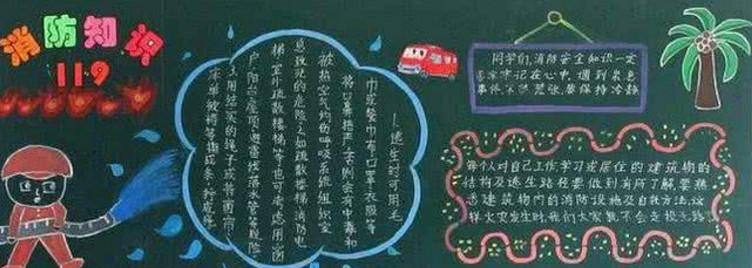 消防知识
119
1.逃生时可用毛
巾或餐巾布口罩衣服等
将口鼻捂严否则会有中毒和
被热空气灼伤呼吸系统组织窒
息致死的危险2如疏散楼梯消防电
梯室外疏散楼梯等也可考虑用窗
户阳台屋顶避雷线落水管等脱险
3用结实的绳子或将窗帘
床单被褥等撕成条,拧成绳
同学们,消防安全知识一定
要牢记在心中,遇到
事件,不要慌张,要保持冷静
每个人对自己工作,学习或居住的建筑物的
结构及逃生路径要做到有所了解,要熟
悉建筑物内的消防设施及自救方法,这
样火灾发生时,我们大家就不会走投无路